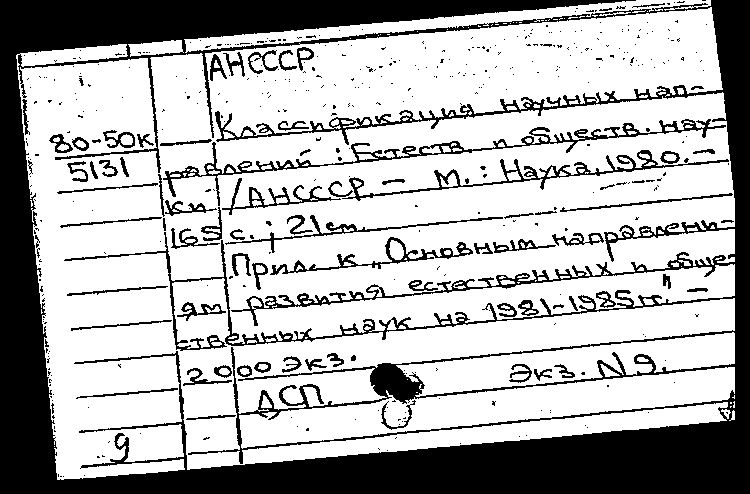 АНСССР.
Классификация научных нап-
80-50к
5131
равлений : Естеств. и обществ. нау-
ки /АНСССР. — М. : Наука, 1980. —
165 с. ; 21 см.
Прил. к „Основным направлени-
ям развития естественных и обще-
ственных наук на 1981-1985 гг." —
2000 экз.
ДСП. Экз. N 9.
9